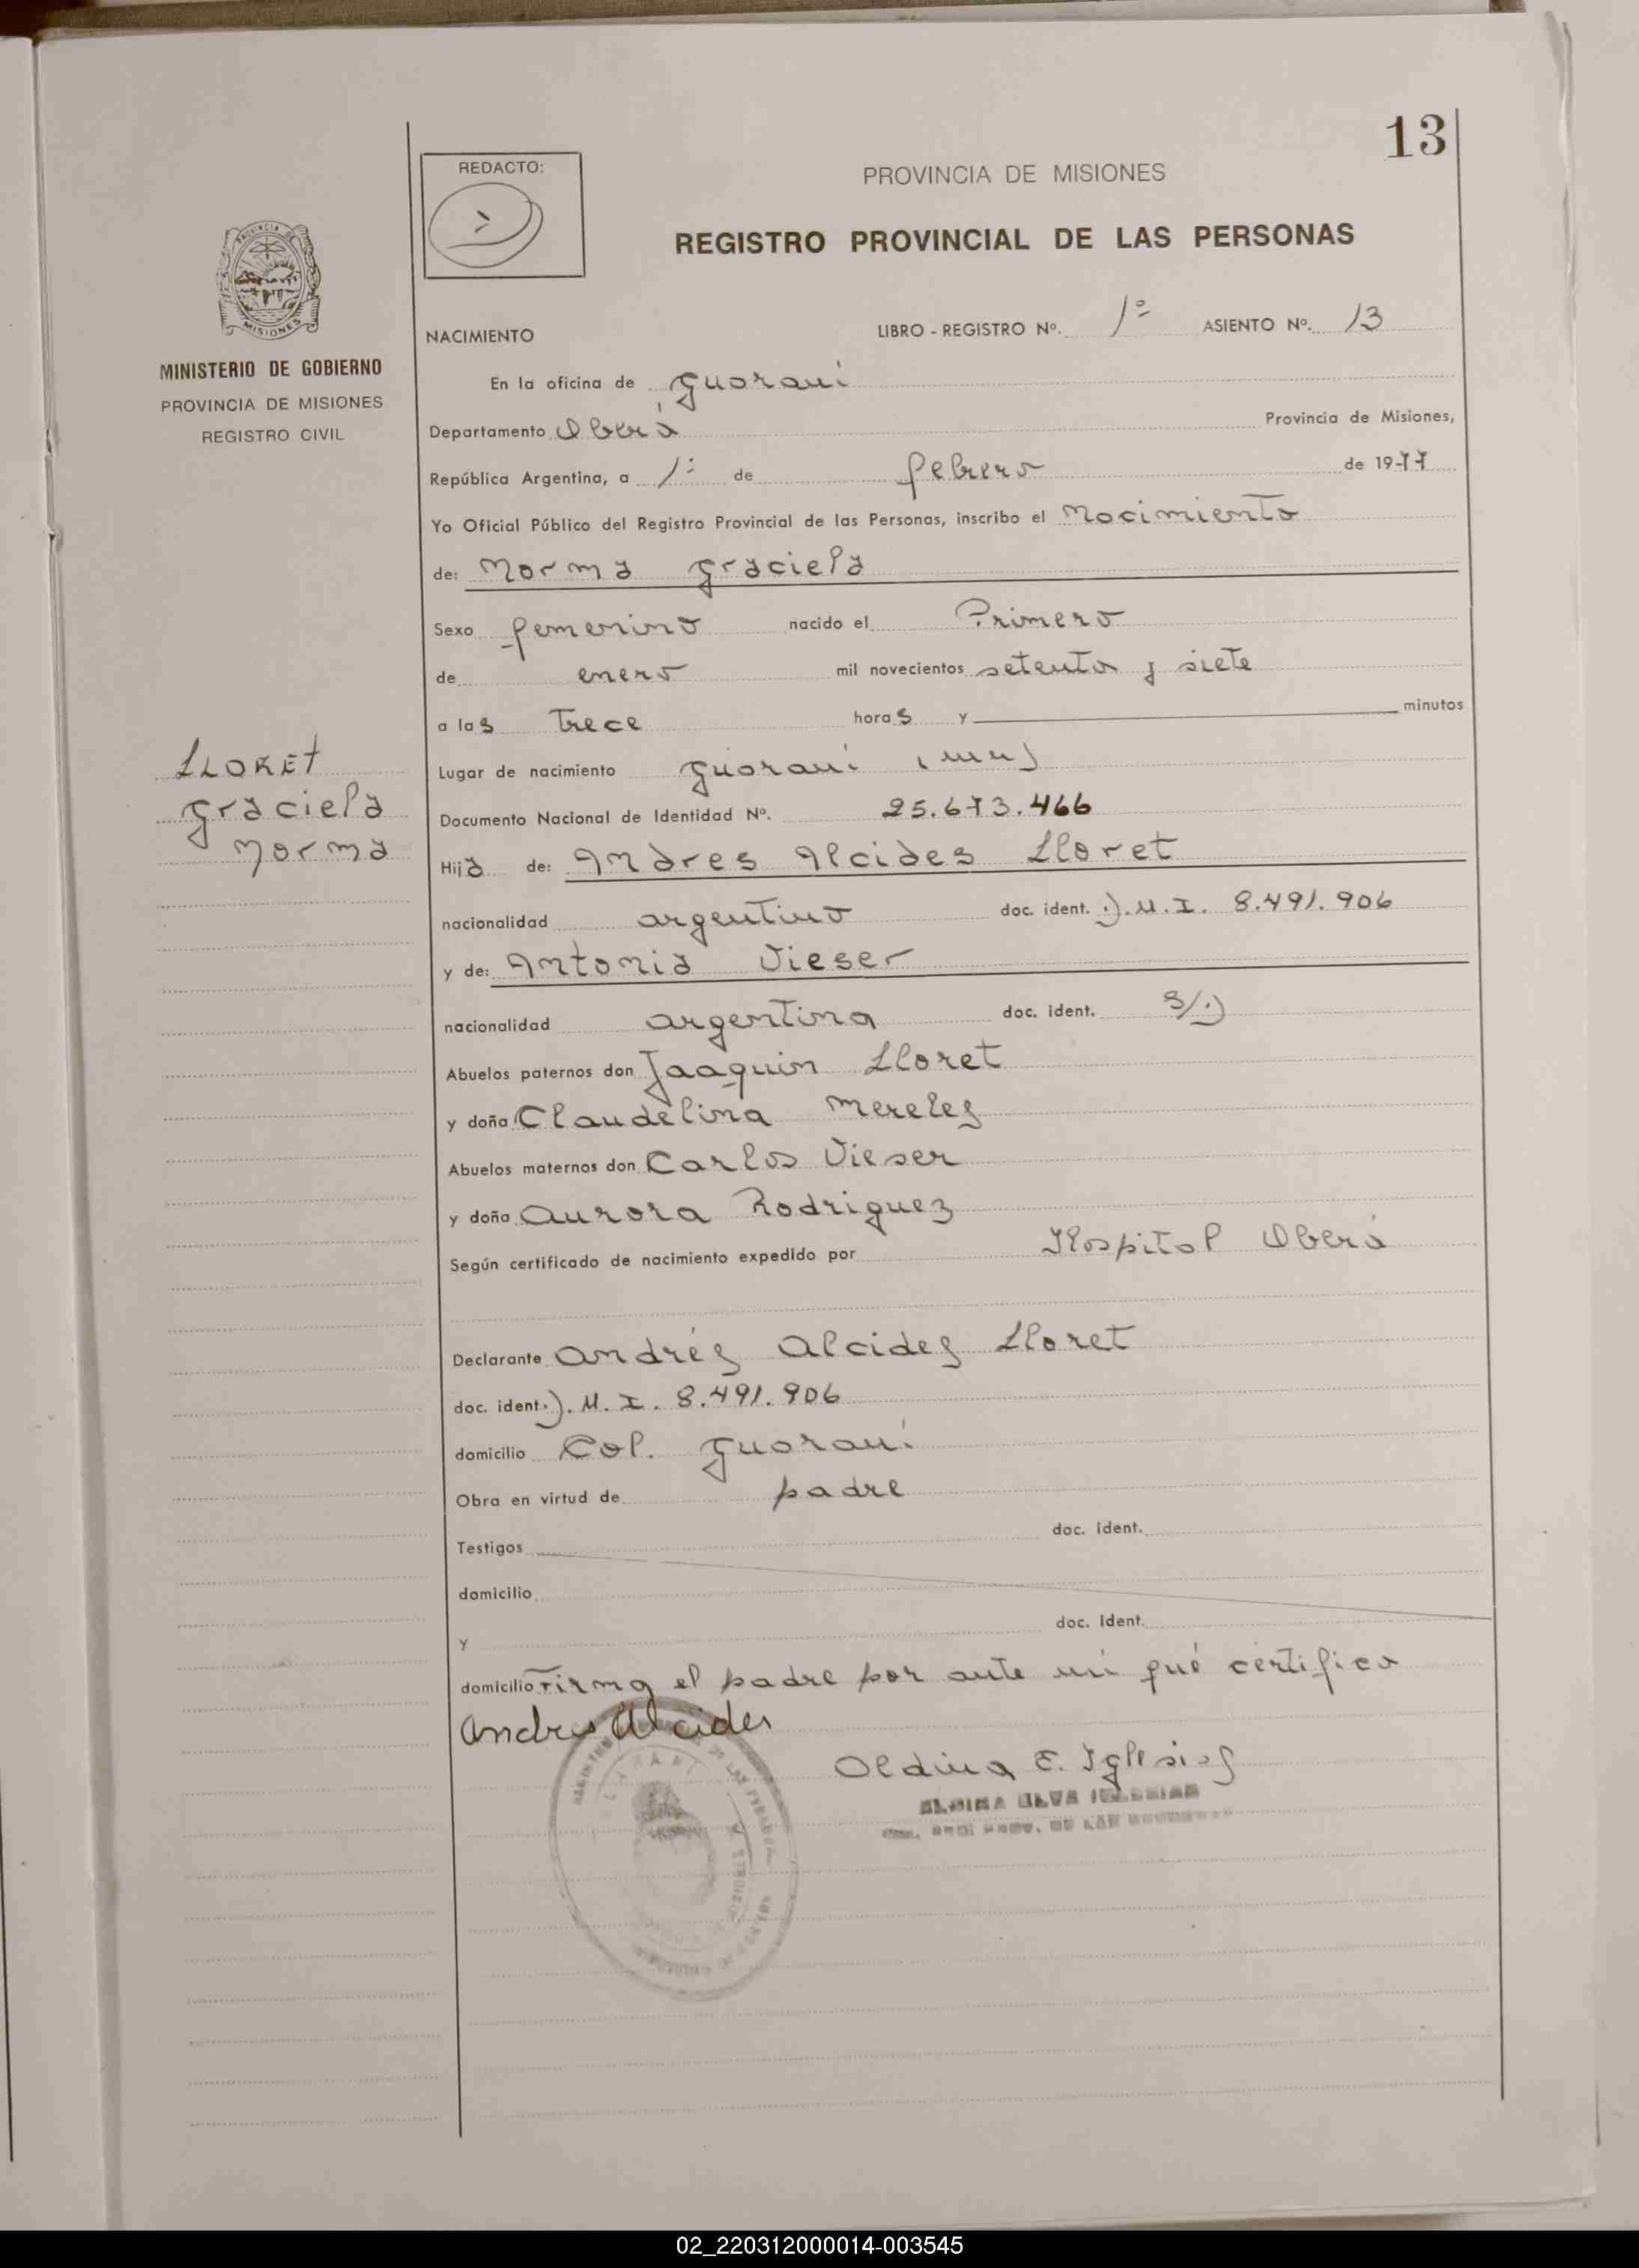 13
REDACTO:
PROVINCIA DE MISIONES
REGISTRO PROVINCIAL DE LAS PERSONAS
MISIONES
MINISTERIO DE GOBIERNO
PROVINCIA DE MISIONES
REGISTRO CIVIL
NACIMIENTO LIBRO - REGISTRO Nº. 1º ASIENTO Nº. 13
En la oficina de Guarani
Departamento Oberá Provincia de Misiones,
República Argentina, a 1º de febrero de 1977
Yo Oficial Público del Registro Provincial de las Personas, inscribo el Nacimiento
de: Norma Graciela
Sexo femenino nacido el Primero
de enero mil novecientos setenta y siete
a las Trece horas y minutos
Lugar de nacimiento Guarani (mns)
LLORET
Graciela
Norma
Documento Nacional de Identidad Nº. 25.673.466
Hija de: Andres Alcides Lloret
nacionalidad argentino doc. ident. D.N.I. 8.491.906
y de: Antonia Vieser
nacionalidad argentina doc. ident. S/D
Abuelos paternos don Jaaquin Lloret
y doña Claudelina Mereles
Abuelos maternos don Carlos Vieser
y doña Aurora Rodriguez
Según certificado de nacimiento expedido por Hospital Oberá
Declarante Andrés Alcides Lloret
doc. ident. D.N.I. 8.491.906
domicilio Col. Guarani
Obra en virtud de padre
Testigos doc. ident.
domicilio
y doc. Ident.
domicilio Firma el padre por ante mi qué certifico
Andres Alcides
Eldina E. Iglesias
02_220312000014-003545